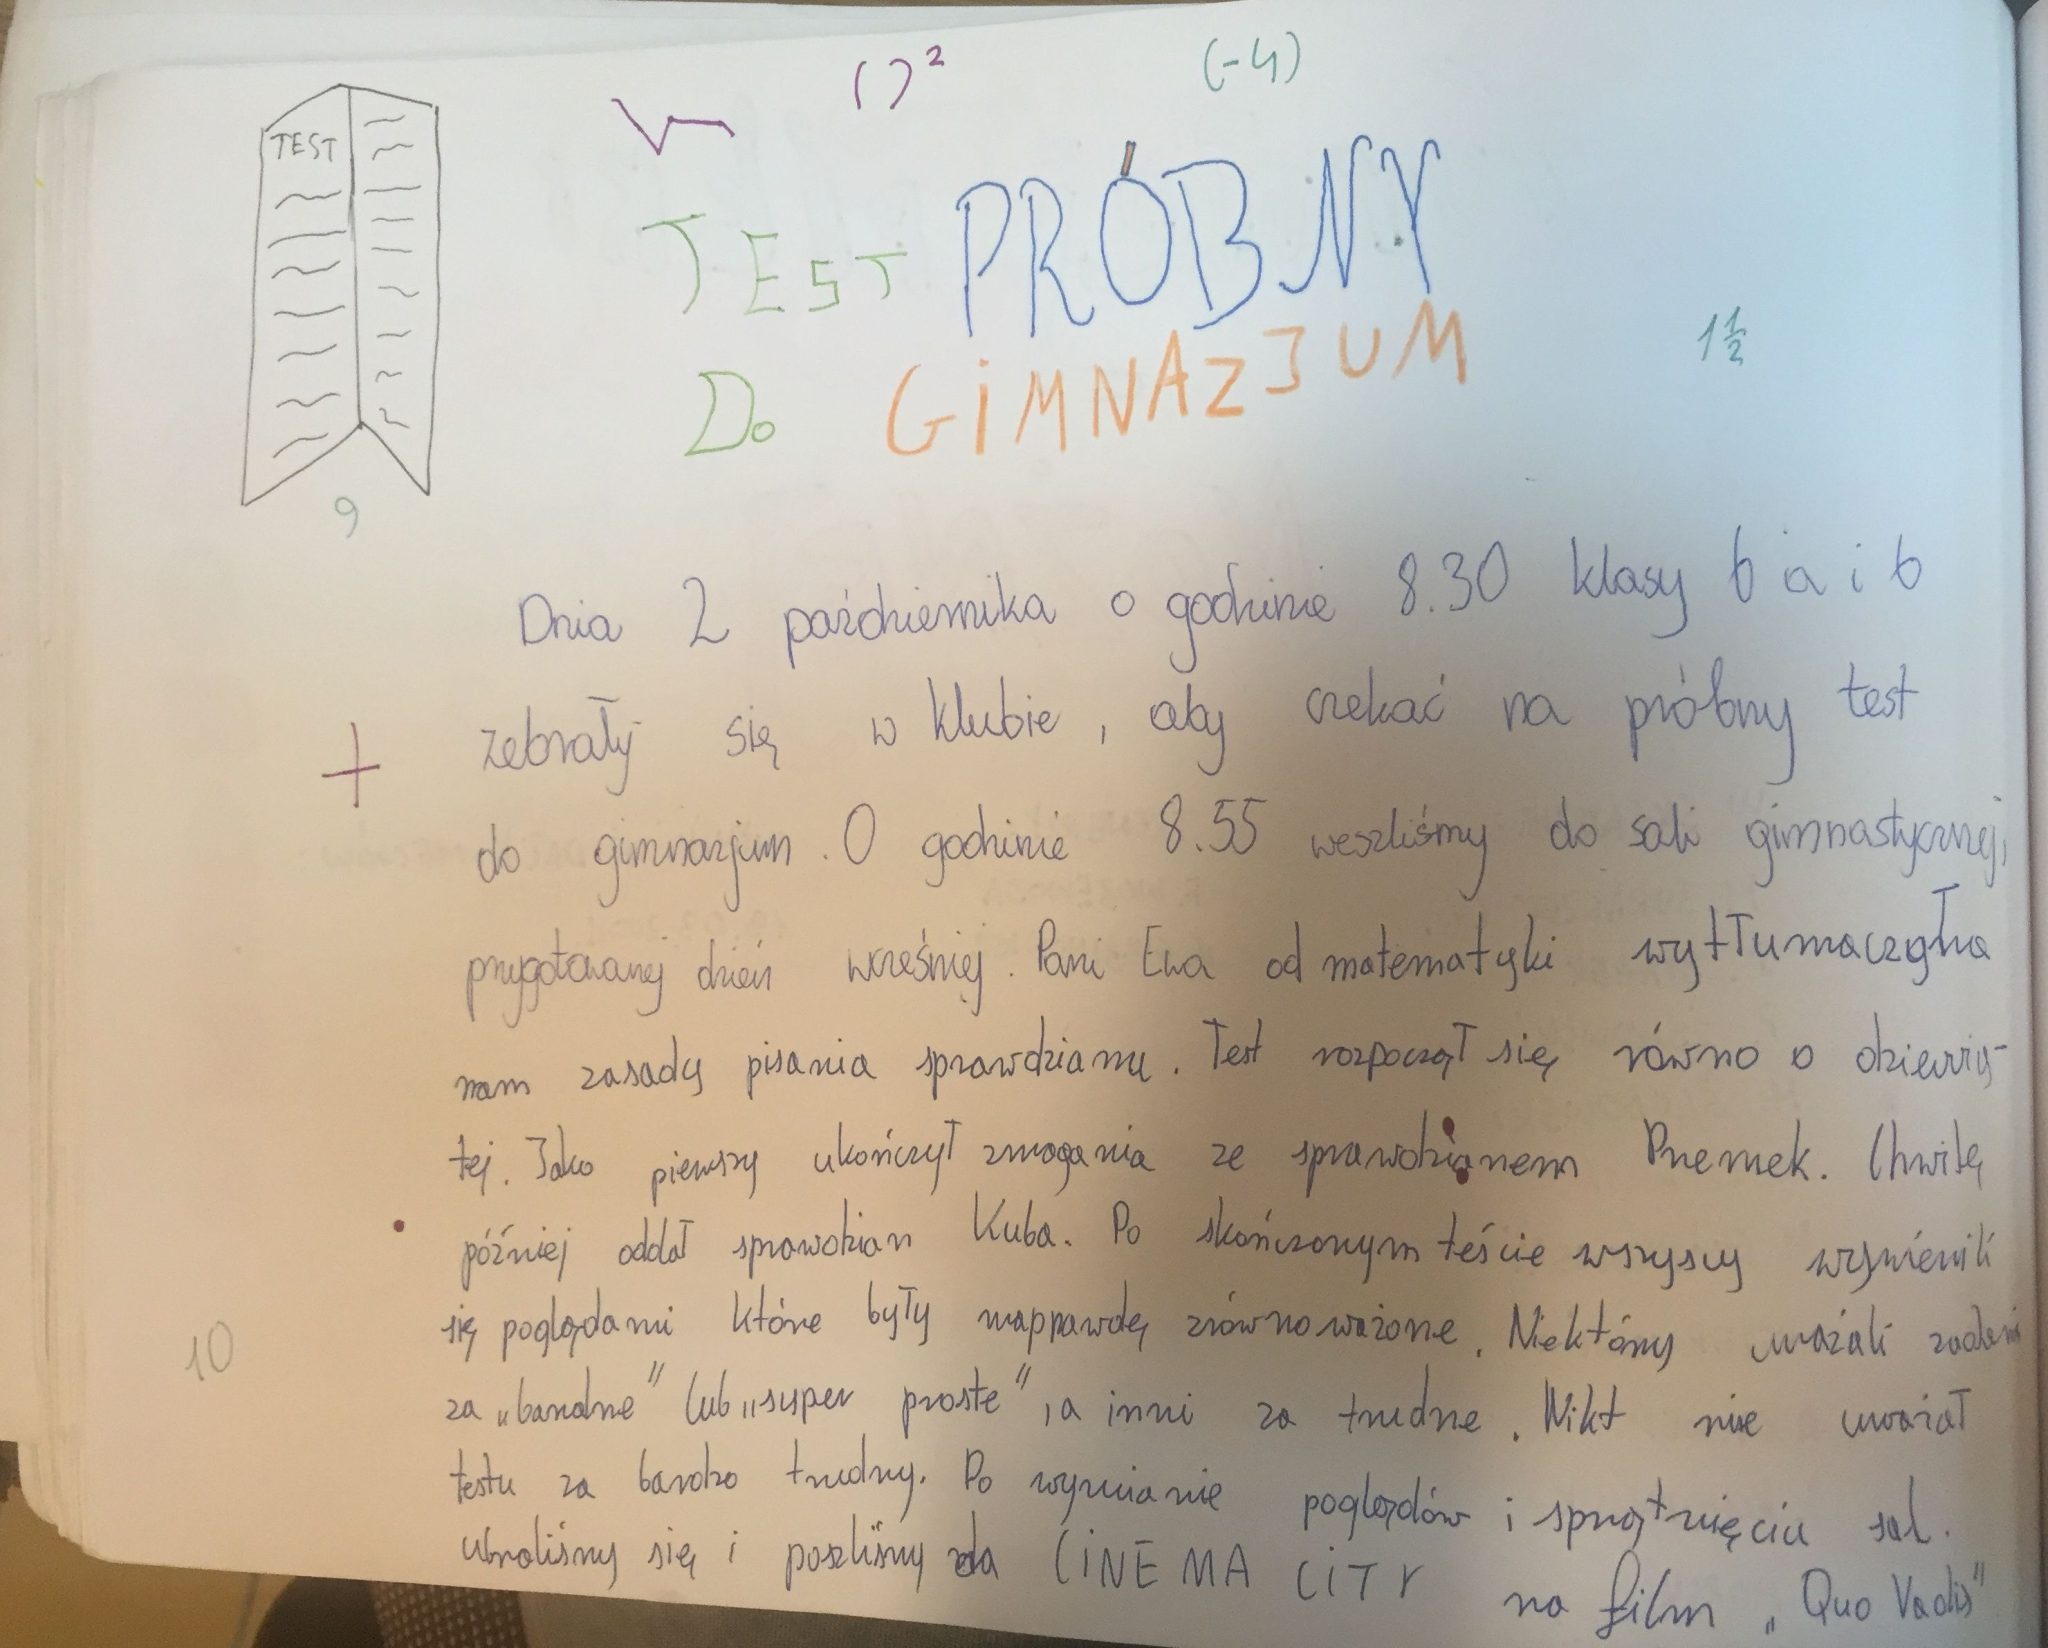 ( )²
(-4)
TEST
TEST PRÓBNY
1 1/2
DO GIMNAZJUM
9
Dnia 2 października o godzinie 8.30 klasy 6 a i b
zebrały się w klubie, aby czekać na próbny test
+
do gimnazjum. O godzinie 8.55 weszliśmy do sali gimnastycznej,
przygotowanej dzień wcześniej. Pani Ewa od matematyki wytłumaczyła
nam zasady pisania sprawdzianu. Test rozpoczął się równo o dziewią-
tej. Jako pierwszy ukończył zmagania ze sprawdzianem Przemek. Chwilę
później oddał sprawdzian Kuba. Po skończonym teście wszyscy wymienili
się poglądami które były naprawdę zrównoważone. Niektórzy uważali zadania
10
za „banalne" lub „super proste", a inni za trudne. Nikt nie uważał
testu za bardzo trudny. Po wymianie poglądów i sprzątnięciu sal.
ubraliśmy się i poszliśmy do CINEMA CITY na film „Quo Vadis"